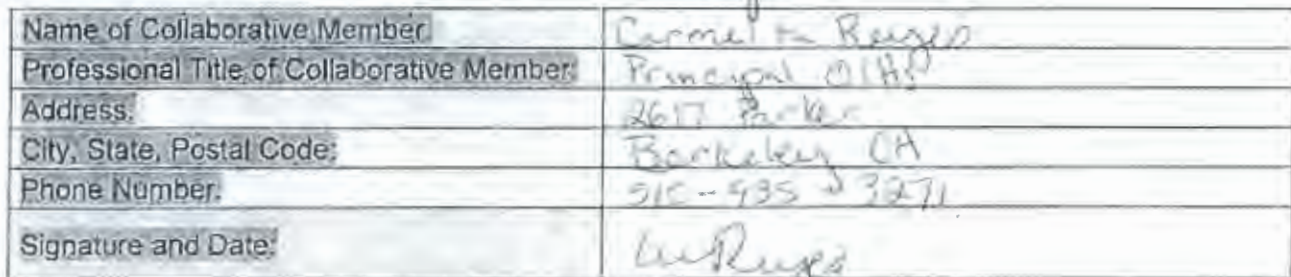 Name of Collaborative Member: Carmelita Reyes
Professional Title of Collaborative Member: Principal OIHS
Address: 2617 Parker
City, State, Postal Code: Berkeley CA
Phone Number: 510-
Signature and Date: Reyes